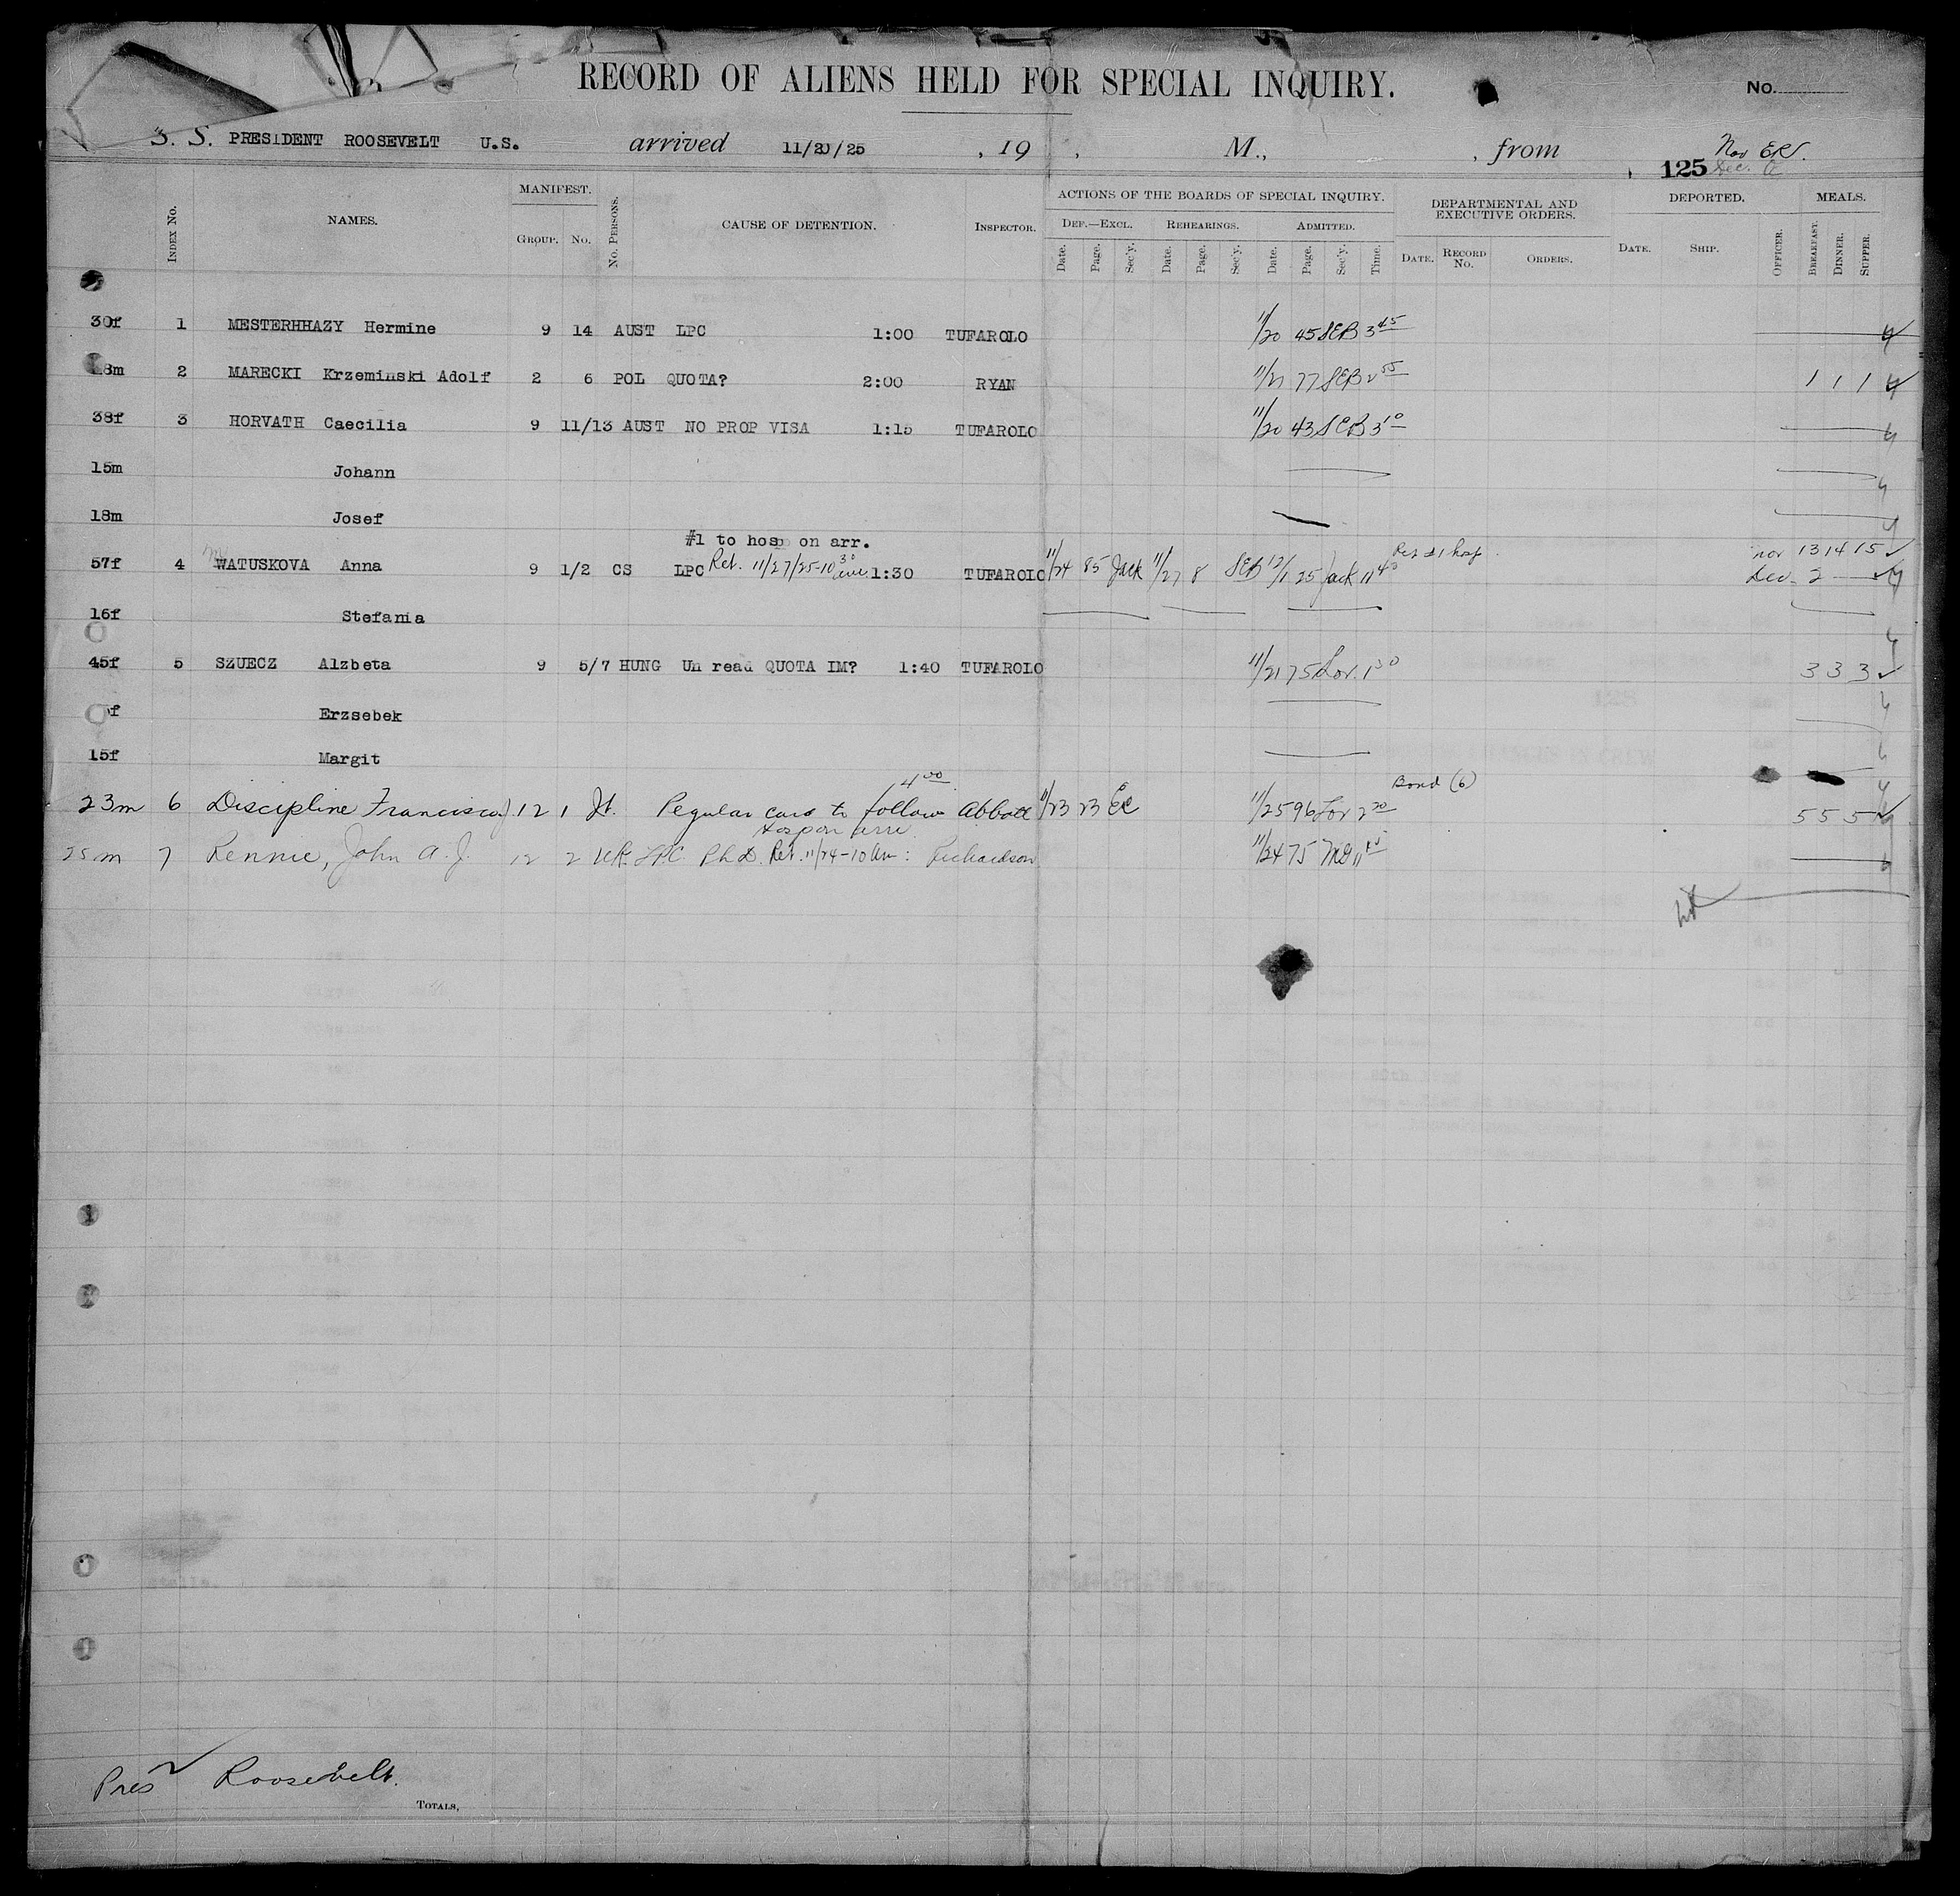 RECORD OF ALIENS HELD FOR SPECIAL INQUIRY.
No.
S. S. PRESIDENT ROOSEVELT U.S. arrived 11/20/25 , 19 , M., , from
125 Nov ER.
Dec.
INDEX No. NAMES. MANIFEST. GROUP. No. No. PERSONS. CAUSE OF DETENTION. INSPECTOR.
ACTIONS OF THE BOARDS OF SPECIAL INQUIRY. DEF.—EXCL. REHEARINGS. ADMITTED.
Date. Page. Sec'y. Date. Page. Sec'y. Date. Page. Sec'y. Time.
DEPARTMENTAL AND EXECUTIVE ORDERS. DATE. RECORD No. ORDERS.
DEPORTED. DATE. SHIP. OFFICER.
MEALS. BREAKFAST. DINNER. SUPPER.
30f 1 MESTERHHAZY Hermine 9 14 AUST LPC 1:00 TUFAROLO 11/20 45 SEB 3 45
8m 2 MARECKI Krzeminski Adolf 2 6 POL QUOTA? 2:00 RYAN 11/21 77 SEB 2 55 1 1 1
38f 3 HORVATH Caecilia 9 11/13 AUST NO PROP VISA 1:15 TUFAROLO 11/20 43 SEB 3 10
15m Johann
18m Josef
#1 to hosp on arr.
57f 4 WATUSKOVA Anna 9 1/2 CS LPC Ret. 11/27/25-10 30 1:30 TUFAROLO 11/24 85 Jack 11/27 8 SEB 12/1 25 Jack 11 45 Ret #1 hosp Nov 13 14 15
Dec. 2
16f Stefania
45f 5 SZUECZ Alzbeta 9 5/7 HUNG Un read QUOTA IM? 1:40 TUFAROLO 11/21 75 Lor. 1 30 3 3 3
f Erzsebek
15f Margit
4 00
Bond (6)
23m 6 Discipline Francisco 12 1 It. Regular card to follow Abbott 11/23 23 ER 11/25 96 Lor 2 20 5 5 5
Hosp on arr.
25m 7 Rennie, John A. J. 12 2 LPC Ph.D. Ret. 11/24-10 am: Richardson 11/24 75 11 45
Pres Roosevelt.
TOTALS,